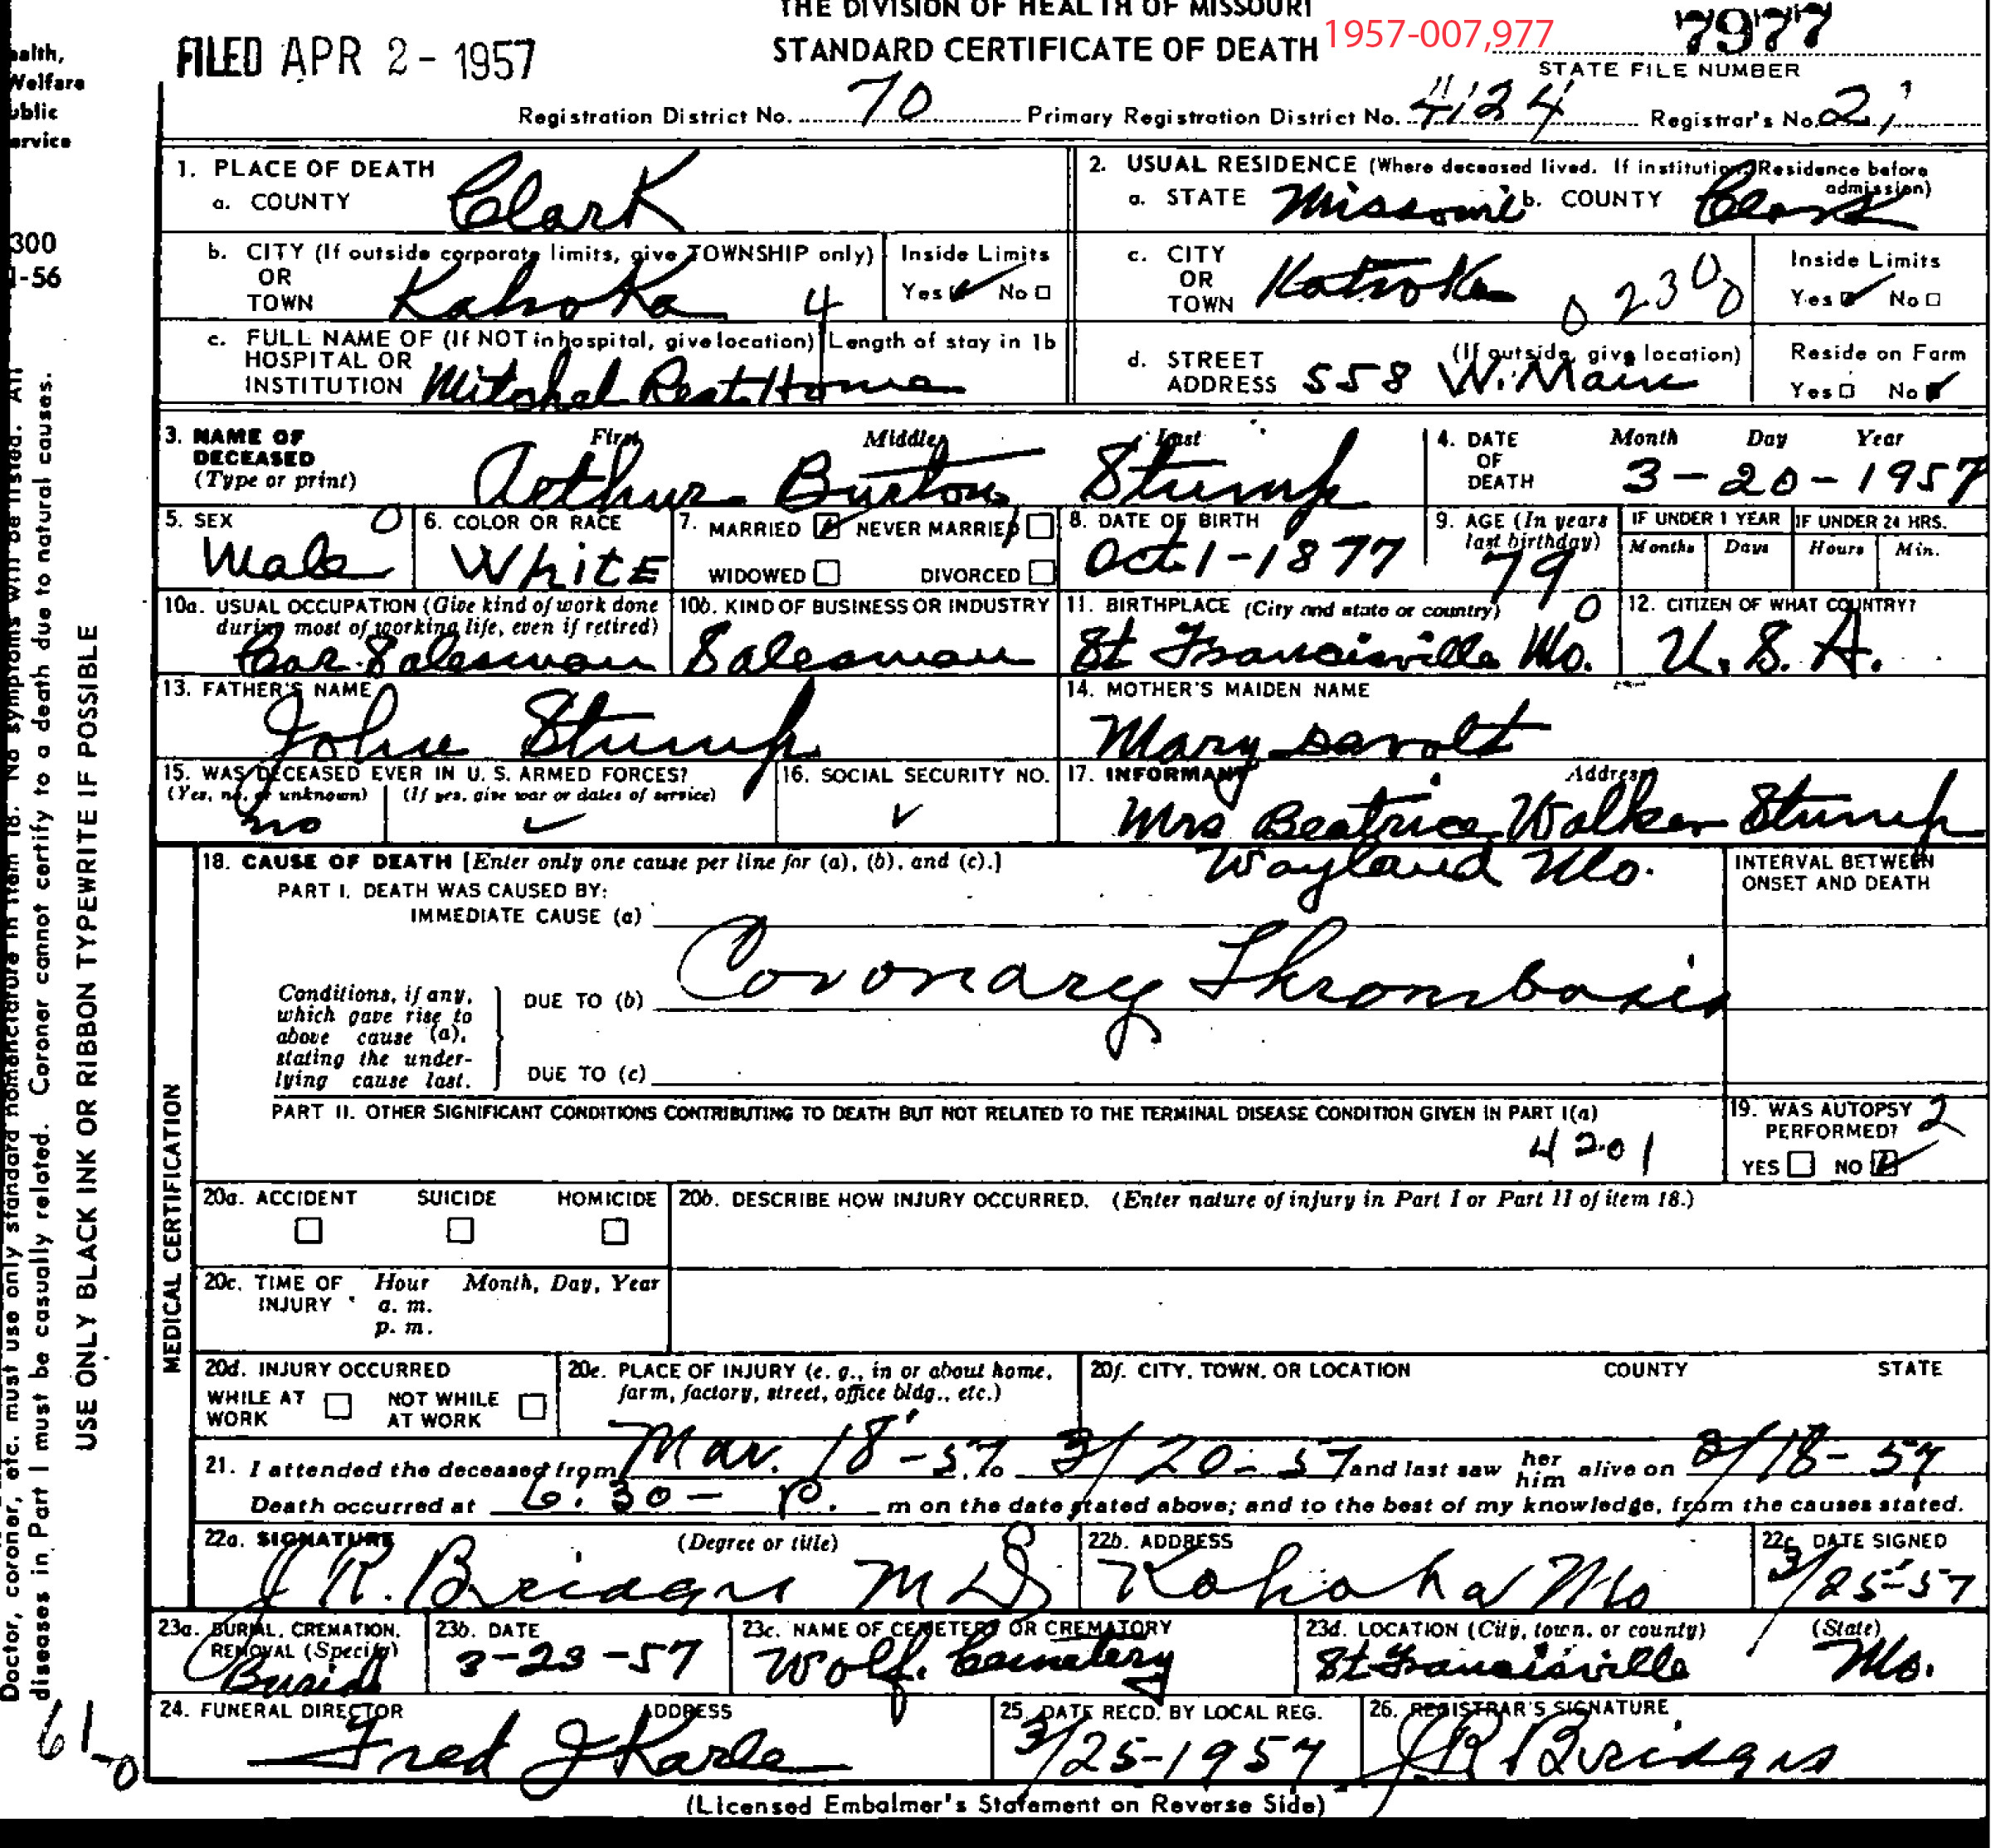 THE DIVISION OF HEALTH OF MISSOURI
FILED APR 2 - 1957
STANDARD CERTIFICATE OF DEATH
1957-007,977
7977
STATE FILE NUMBER
Registration District No. 70 Primary Registration District No. 4124 Registrar's No. 21
ealth,
Welfare
ublic
ervice
300
1-56
1. PLACE OF DEATH
a. COUNTY Clark
2. USUAL RESIDENCE (Where deceased lived. If institution, Residence before admission)
a. STATE Missouri b. COUNTY Clark
b. CITY (If outside corporate limits, give TOWNSHIP only)
OR
TOWN Kahoka 4
Inside Limits
Yes No
c. CITY
OR
TOWN Kahoka 0230
Inside Limits
Yes No
c. FULL NAME OF (If NOT in hospital, give location)
HOSPITAL OR
INSTITUTION Mitchel Rest Home
Length of stay in 1b
d. STREET
ADDRESS 558 W. Main
(If outside, give location)
Reside on Farm
Yes No
3. NAME OF
DECEASED
(Type or print)
First Middle Last
Arthur Burton Stump
4. DATE
OF
DEATH
Month Day Year
3-20-1957
5. SEX 0
Male
6. COLOR OR RACE
White
7. MARRIED NEVER MARRIED
WIDOWED DIVORCED
8. DATE OF BIRTH
Oct. 1-1877
9. AGE (In years
last birthday)
79
IF UNDER 1 YEAR
Months Days
IF UNDER 24 HRS.
Hours Min.
10a. USUAL OCCUPATION (Give kind of work done
during most of working life, even if retired)
Car Salesman
10b. KIND OF BUSINESS OR INDUSTRY
Salesman
11. BIRTHPLACE (City and state or country)
St Francisville Mo. 0
12. CITIZEN OF WHAT COUNTRY?
U.S.A.
13. FATHER'S NAME
John Stump
14. MOTHER'S MAIDEN NAME
Mary
15. WAS DECEASED EVER IN U. S. ARMED FORCES?
(Yes, no, or unknown) (If yes, give war or dates of service)
no
16. SOCIAL SECURITY NO.
17. INFORMANT Address
Mrs Beatrice Walker Stump
Wayland Mo.
MEDICAL CERTIFICATION
18. CAUSE OF DEATH [Enter only one cause per line for (a), (b), and (c).]
PART I. DEATH WAS CAUSED BY:
IMMEDIATE CAUSE (a)
INTERVAL BETWEEN
ONSET AND DEATH
Coronary Thrombosis
Conditions, if any,
which gave rise to
above cause (a),
stating the under-
lying cause last.
DUE TO (b)
DUE TO (c)
PART II. OTHER SIGNIFICANT CONDITIONS CONTRIBUTING TO DEATH BUT NOT RELATED TO THE TERMINAL DISEASE CONDITION GIVEN IN PART I(a)
4201
19. WAS AUTOPSY
PERFORMED? 2
YES NO
20a. ACCIDENT SUICIDE HOMICIDE
20b. DESCRIBE HOW INJURY OCCURRED. (Enter nature of injury in Part I or Part II of item 18.)
20c. TIME OF INJURY Hour Month, Day, Year
a. m.
p. m.
20d. INJURY OCCURRED
WHILE AT WORK NOT WHILE AT WORK
20e. PLACE OF INJURY (e. g., in or about home,
farm, factory, street, office bldg., etc.)
20f. CITY, TOWN, OR LOCATION COUNTY STATE
21. I attended the deceased from Mar. 18-57 to 3/20-57 and last saw her him alive on 3/18-57
Death occurred at 6:30- P. m on the date stated above; and to the best of my knowledge, from the causes stated.
22a. SIGNATURE (Degree or title)
J R. Bridges MD
22b. ADDRESS
Kahoka Mo
22c. DATE SIGNED
3/25-57
23a. BURIAL, CREMATION,
REMOVAL (Specify)
Burial
23b. DATE
3-23-57
23c. NAME OF CEMETERY OR CREMATORY
Wolf. Cemetery
23d. LOCATION (City, town, or county) (State)
St Francisville Mo.
24. FUNERAL DIRECTOR ADDRESS
Fred J Karle
25. DATE RECD. BY LOCAL REG.
3/25-1957
26. REGISTRAR'S SIGNATURE
J R Bridges
(Licensed Embalmer's Statement on Reverse Side)
Doctor, coroner, etc. must use only standard nomenclature in item 18. No symptoms will be listed. All
diseases in Part I must be casually related. Coroner cannot certify to a death due to natural causes.
USE ONLY BLACK INK OR RIBBON TYPEWRITE IF POSSIBLE
61-0